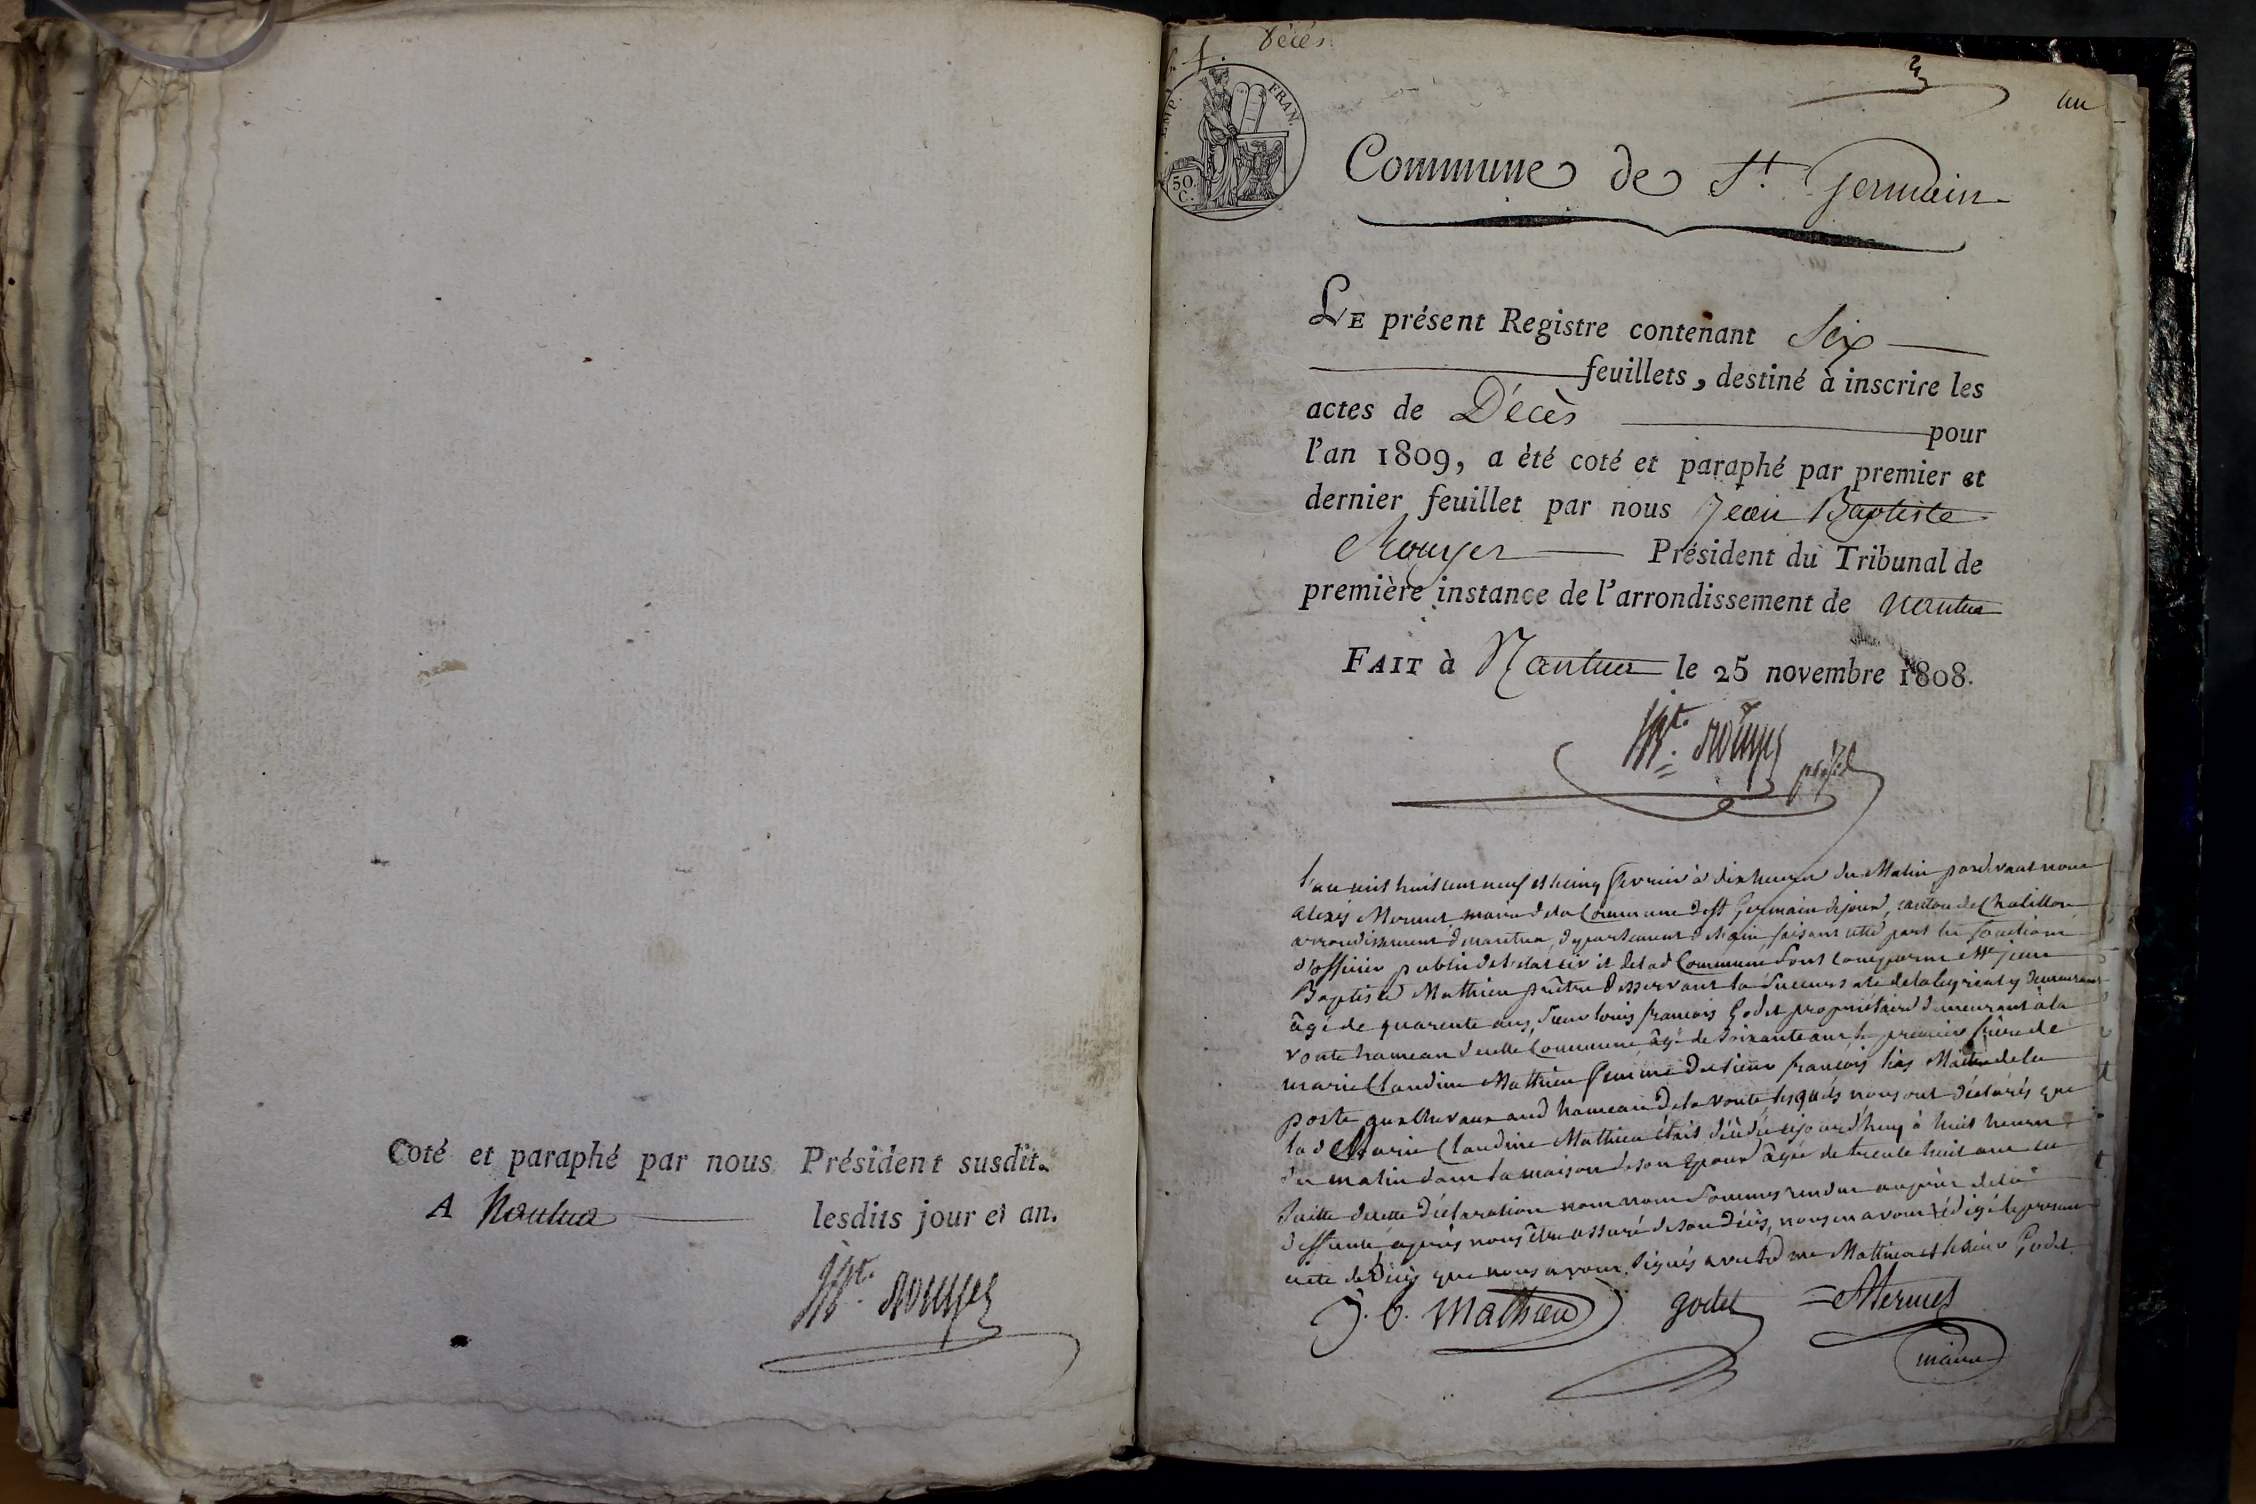 Coté et paraphé par nous Président susdit.
A Nantua lesdits jour et an.
Bte. Rouyer
Décès
1.
2
un
EMP. FRAN.
50.
C.
Commune de St. Germain
LE présent Registre contenant Six
feuillets, destiné à inscrire les
actes de Décès pour
l'an 1809, a été coté et paraphé par premier et
dernier feuillet par nous Jean Baptiste
Rouyer Président du Tribunal de
première instance de l'arrondissement de nantua
FAIT à Nantua le 25 novembre 1808.
Bte. Rouyer présid
l'an mil huit cent neuf et le cinq fevrier à dix heures du Matin pardevant nous
Alexis Mermet maire de la Commune de St Germain de joux, canton de Chatillon
arrondissement de nantua, département de l'ain faisant les fonctions
d'officier public de l'etat civil de lad Commune sont comparus Mre jean
Baptiste Mathieu prêtre desservant la succursale de y demeurant
âgé de quarente ans, Sieur louis francois Godet propriétaire demeurant à la
voute hameau de cette Commune âgé de soixante ans le premier frère de
marie Claudine Mathieu femme du sieur francois Maitre de la
poste aux chevaux aud hameau de la voute lesquels nous ont déclarés que
lad Marie Claudine Mathieu était décédée cejourd'huy à huit heures
du matin dans la maison de son Epoux âgée de trente huit ans en
suitte de cette déclaration nous nous sommes rendus auprès de la
deffunte, après nous être assuré de son décès, nous en avons rédigé le present
acte de Décès que nous avons signés avec led mre Mathieu et le sieur Godet
J. B. Mathieu godet Mermet
maire